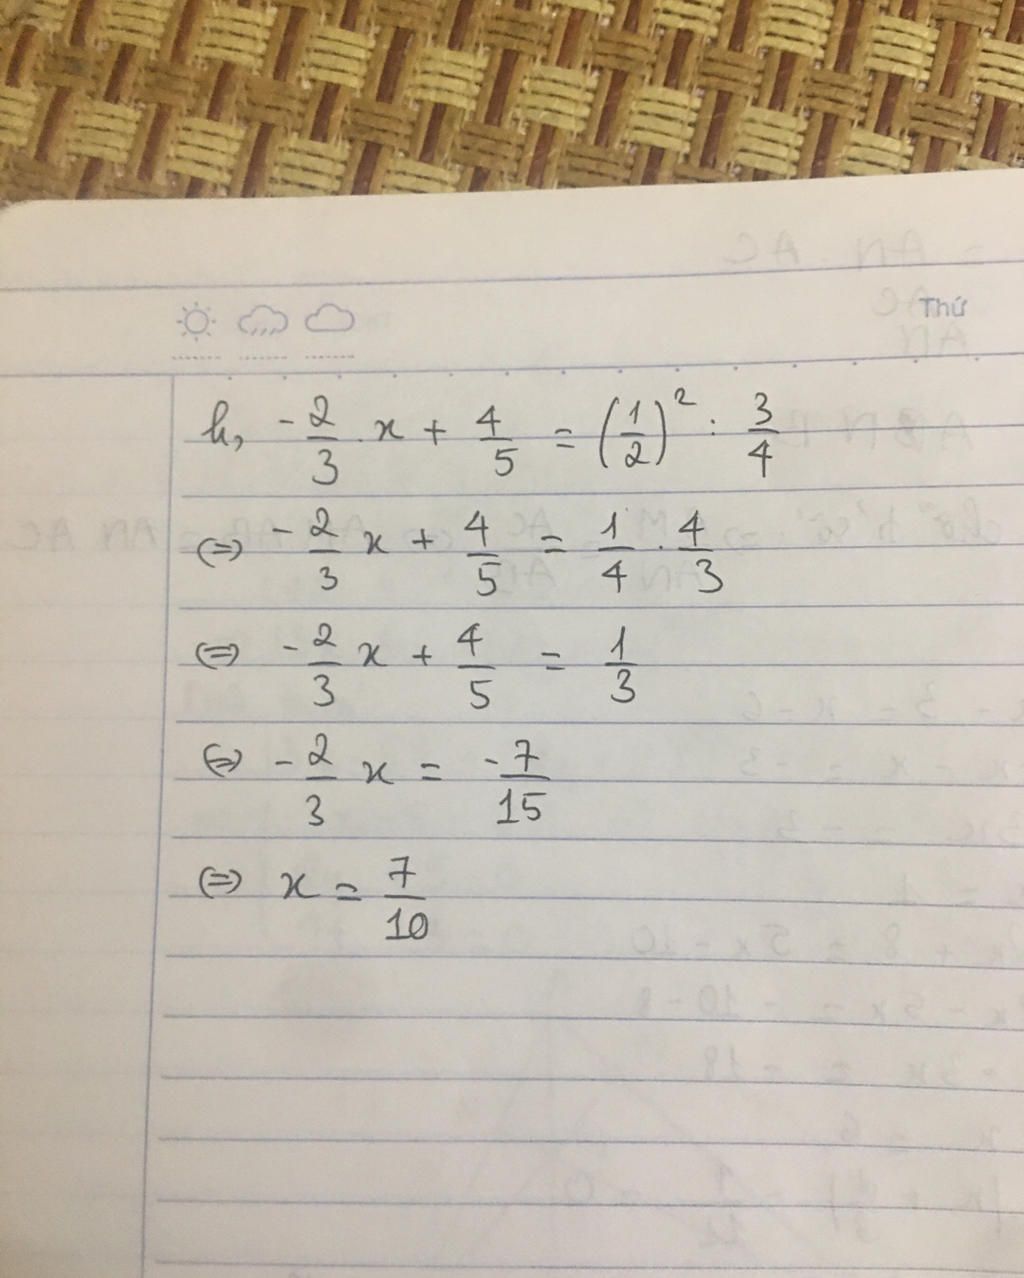 Thứ
h, -2/3 . x + 4/5 = (1/2)² : 3/4
(=) -2/3 x + 4/5 = 1/4 . 4/3
(=) -2/3 x + 4/5 = 1/3
(=) -2/3 x = -7/15
(=) x = 7/10